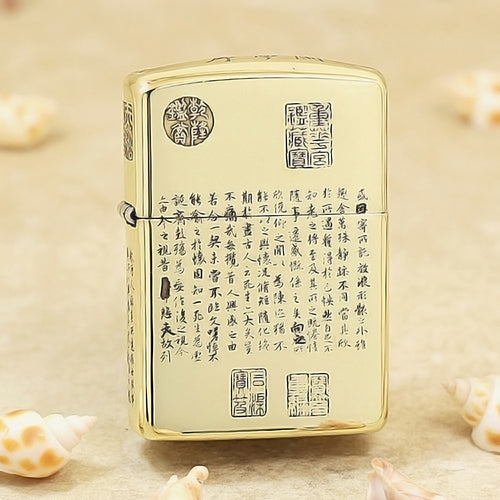 乾隆鑑賞
重華宮鑑藏寶
或因寄所託放浪形骸之外雖
趣舍萬殊靜躁不同當其欣
於所遇暫得於己怏然自足不
知老之將至及其所之既惓情
隨事遷感慨係之矣向之所
欣俛仰之閒以為陳迹猶不
能不以之興懷況脩短隨化終
期於盡古人云死生亦大矣豈
不痛哉每攬昔人興感之由
若合一契未嘗不臨文嗟悼不
能喻之於懷固知一死生為虛
誕齊彭殤為妄作後之視今
由今之視昔夫故列
石渠寶笈